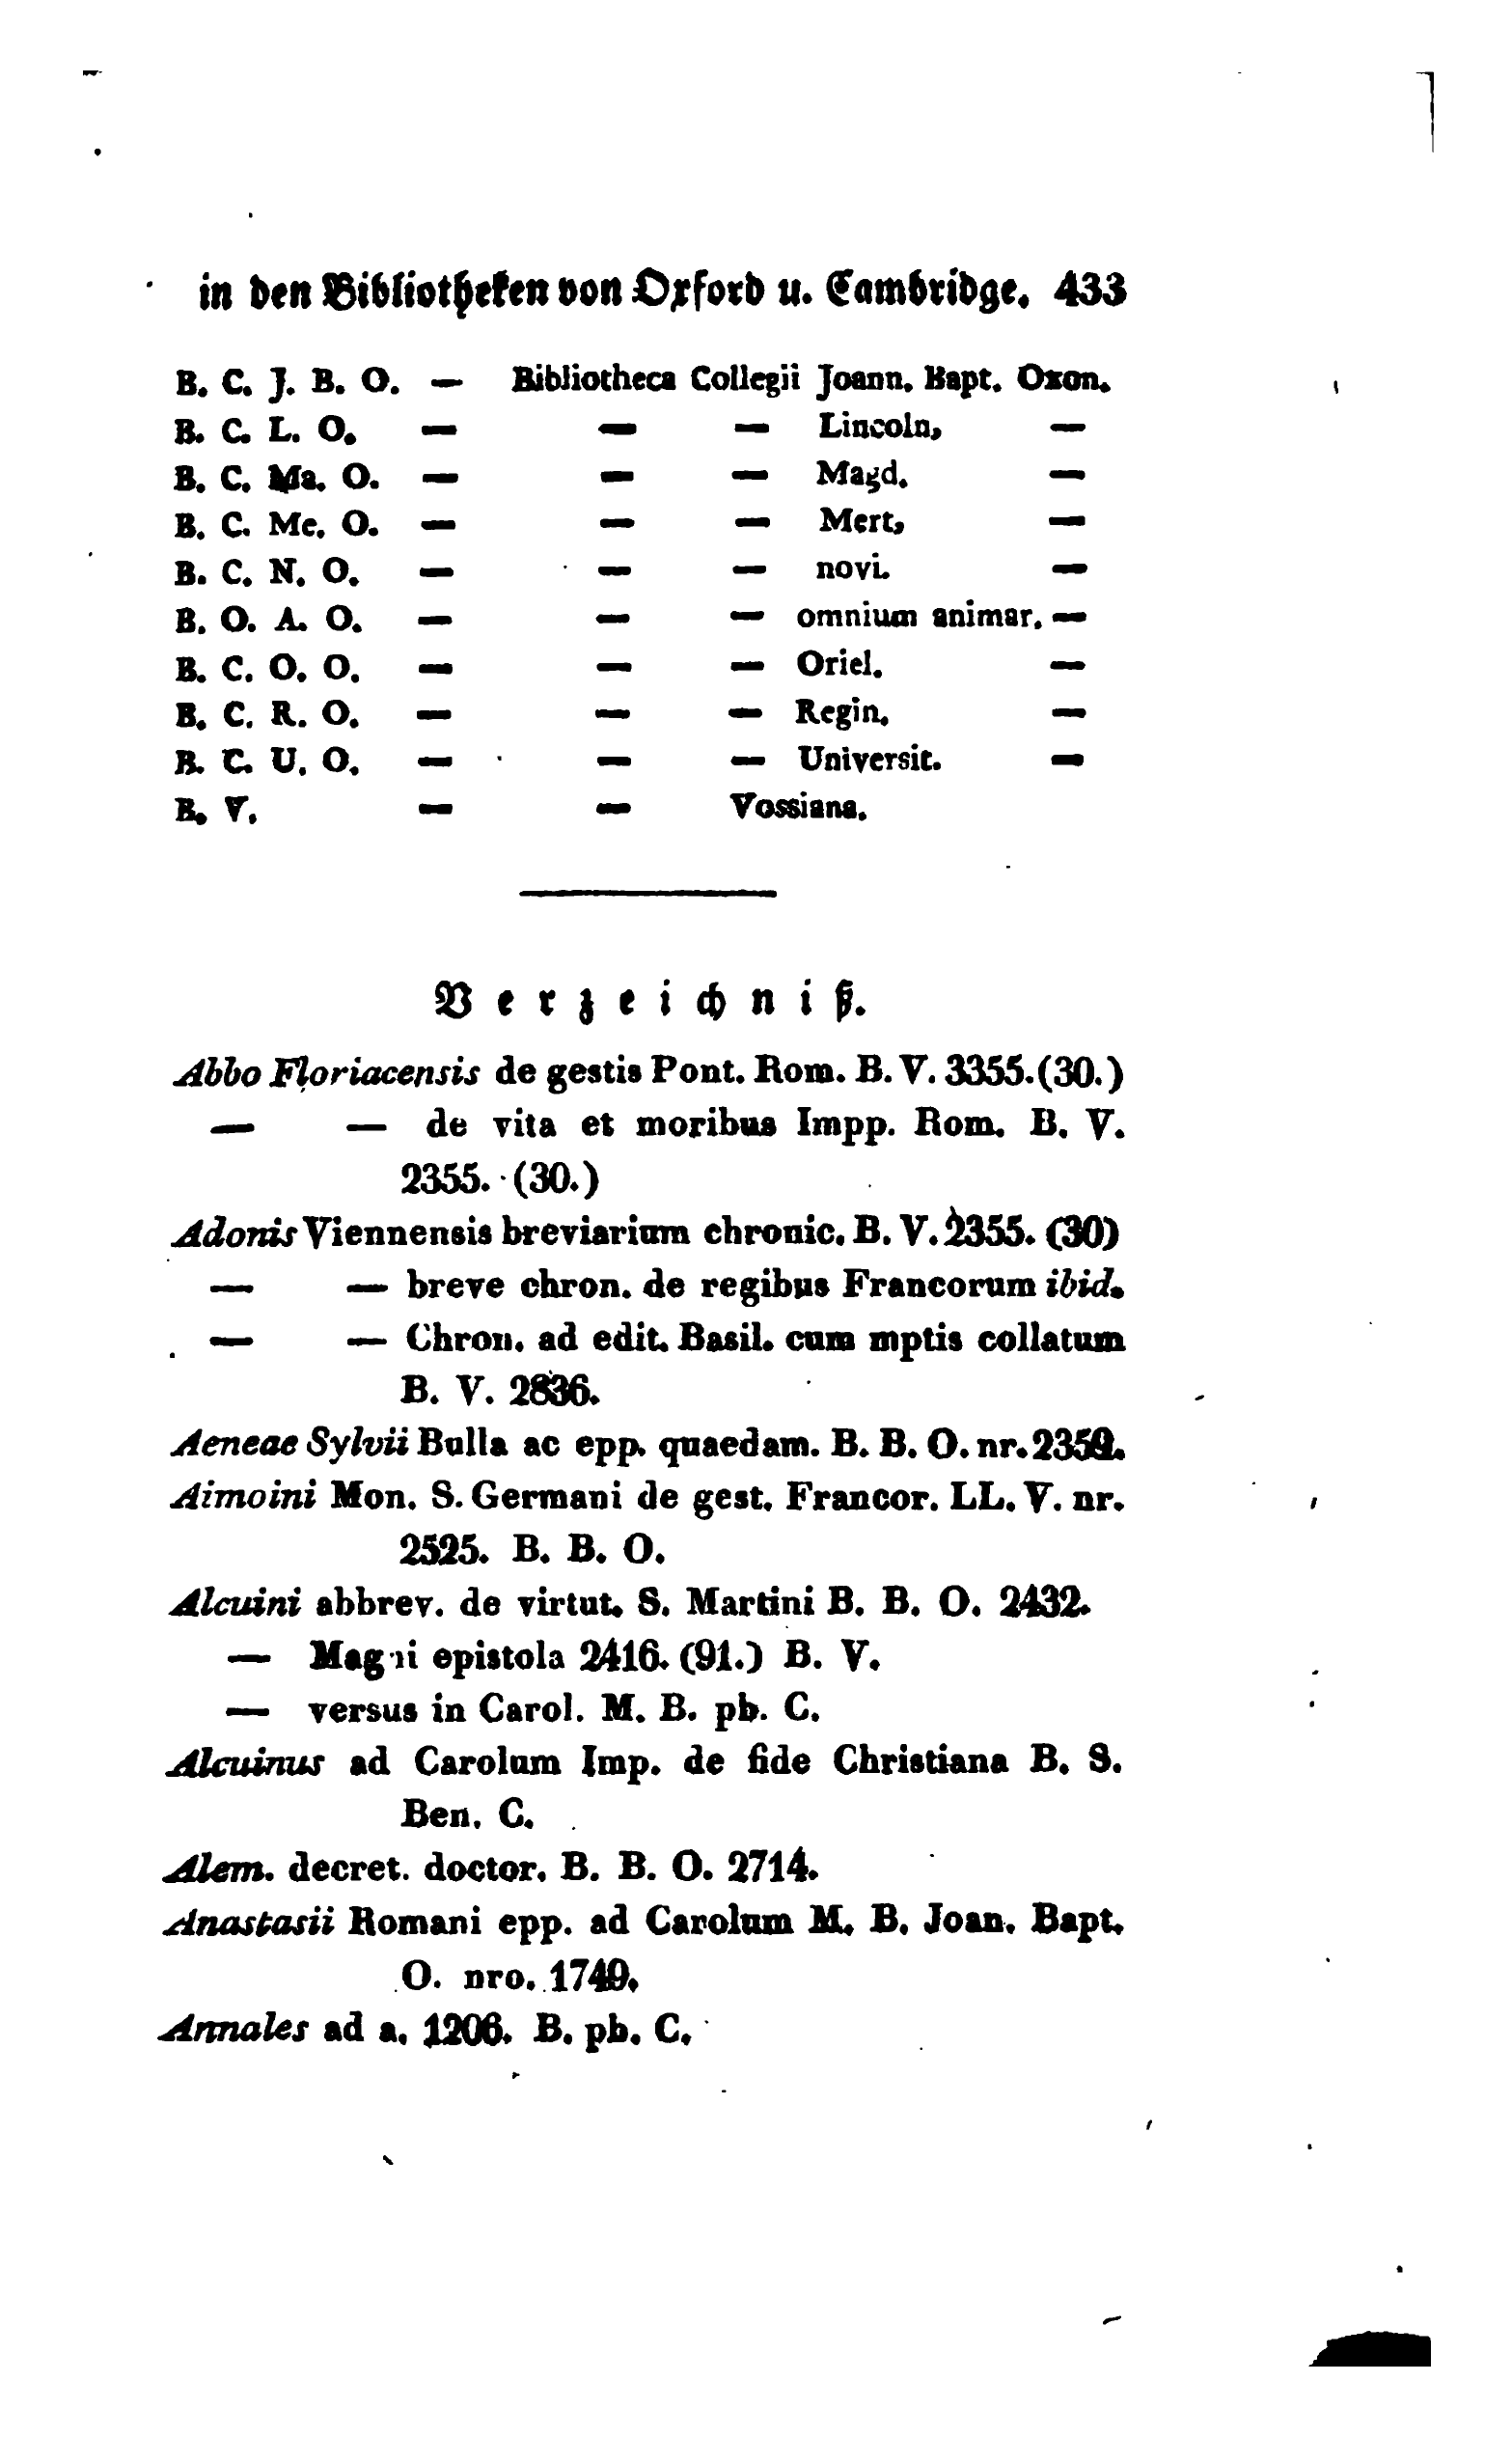 in den Bibliotheken von Oxford u. Cambridge. 433
B. C. J. B. O. — Bibliotheca Collegii Joann. Bapt. Oxon.
B. C. L. O. — — — Lincoln, —
B. C. Ma. O. — — — Magd. —
B. C. Me. O. — — — Mert, —
B. C. N. O. — — — novi. —
B. O. A. O. — — — omnium animar. —
B. C. O. O. — — — Oriel. —
B. C. R. O. — — — Regin. —
B. C. U. O. — — — Universit. —
B. V. — — Vossiana.
Verzeichniß.
Abbo Floriacensis de gestis Pont. Rom. B. V. 3355. (30.)
— — de vita et moribus Impp. Rom. B. V.
2355. (30.)
Adonis Viennensis breviarium chronic. B. V. 2355. (30)
— — breve chron. de regibus Francorum ibid.
— — Chron. ad edit. Basil. cum mptis collatum
B. V. 2836.
Aeneae Sylvii Bulla ac epp. quaedam. B. B. O. nr. 2359.
Aimoini Mon. S. Germani de gest. Francor. LL. V. nr.
2525. B. B. O.
Alcuini abbrev. de virtut. S. Martini B. B. O. 2432.
— Magni epistola 2416. (91.) B. V.
— versus in Carol. M. B. pb. C.
Alcuinus ad Carolum Imp. de fide Christiana B. S.
Ben. C.
Alem. decret. doctor. B. B. O. 2714.
Anastasii Romani epp. ad Carolum M. B. Joan. Bapt.
O. nro. 1749.
Annales ad a. 1206. B. pb. C.